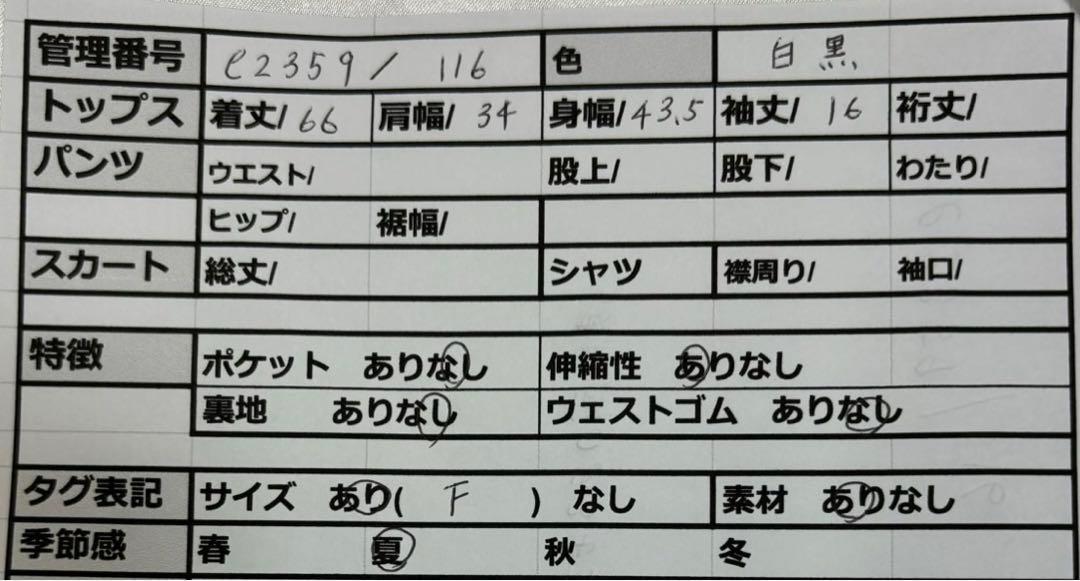 管理番号 e2359/ 116 色 白 黒
トップス 着丈/66 肩幅/ 34 身幅/43.5 袖丈/ 16 裄丈/
パンツ ウエスト/ 股上/ 股下/ わたり/
ヒップ/ 裾幅/
スカート 総丈/ シャツ 襟周り/ 袖口/
特徴 ポケット ありなし 伸縮性 ありなし
裏地 ありなし ウェストゴム ありなし
タグ表記 サイズ あり( F ) なし 素材 ありなし
季節感 春 夏 秋 冬